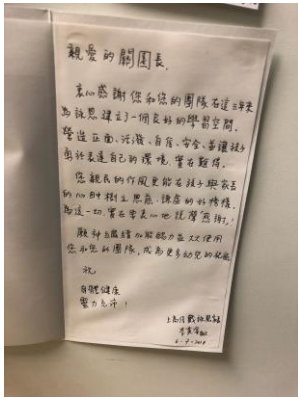 親愛的關園長,
衷心感謝您和您的團隊在這三年來
為詠恩建立了一個良好的學習空間,
營造正面、活潑、自有、安全、並讓孩子
勇於表達自己的環境,實在難得。
您親民的作風更能在孩子與家長
的心中樹立恩慈、謙虛的好榜樣,
為這一切,實在要衷心地說聲「感謝」。
願神繼續加能賜力並大大使用
您和您的團隊,成為更多幼兒的祝福
祝
身體健康
靈力充沛!
上